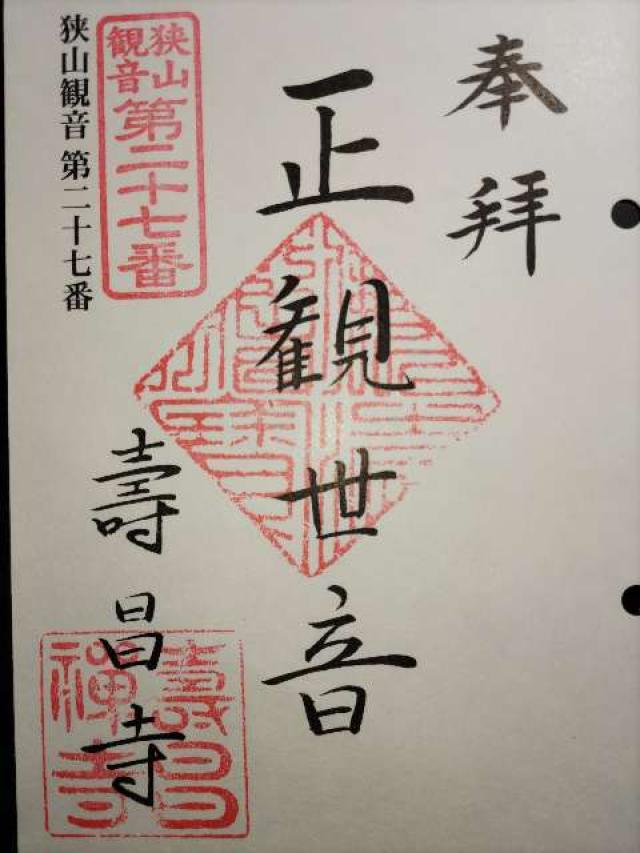 奉拝
正観世音
狭山観音 第二十七番
狭山
観音
第二十七番
壽昌寺
壽昌
禅寺